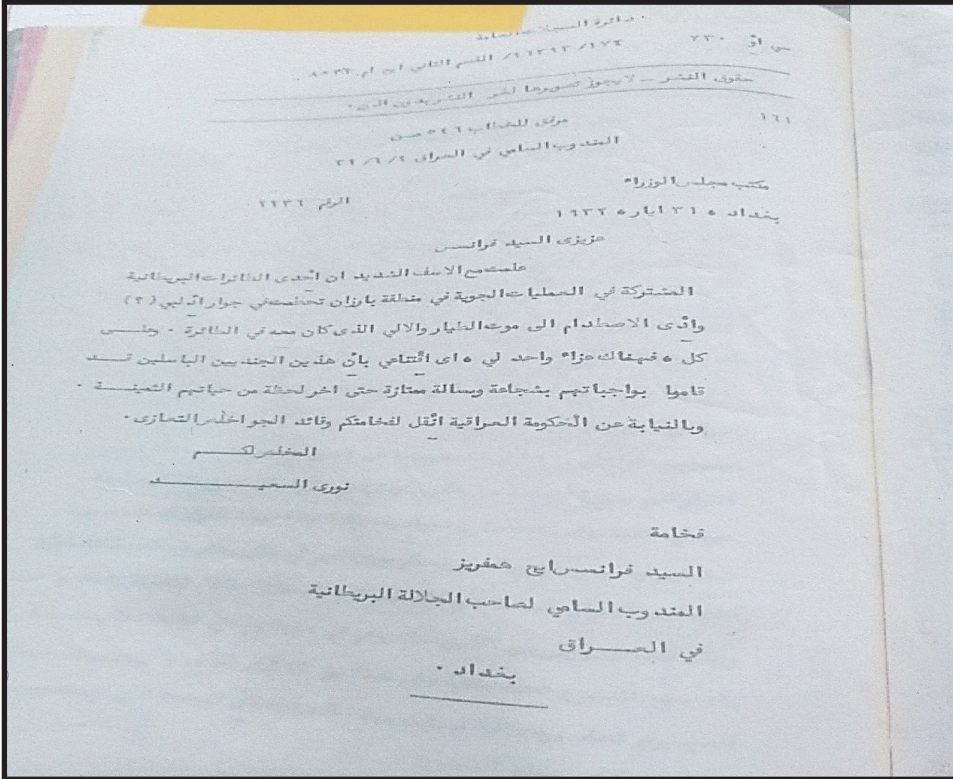 دائرة السجلات العامة
سي اوٌ ٧٣٠ ١٧٤/ ٩٦٣٩٣/ القسم الثاني
حقوق النشر - لا يجوز تصويرها لغير
١٦١
مرفق للخطاب ٥٤٦ من
المندوب السامي في العراق ٣٢/٦/٤
مكتب مجلس الوزراء
بغداد ٥ ٣١ ايار ٥ ١٦٣٢
الرقم ٢٢٣٦
عزيزي السيد فرانسس
علمت مع الاسف الشديد ان احٌدى الطائرات البريطانية
المشتركة في العمليات الجوية في منطقة بارزان تحطمت في جوار ادٌلبي (٢)
وادٌى الاصطدام الى موت الطيار والالي الذى كان معه في الطائرة ٠ وعلـــى
كل ٥ فهناك عزاء واحد لي ٥ اى اقٌتناعي بانٌ هذين الجنديين الباسلين قـــد
قاموا بواجباتهم بشجاعة وبسالة ممتازة حتى اخر لحظة من حياتهم الثمينـــة ٠
وبالنيابة عن الٌحكومة العراقية انٌقل لفخامتكم وقائد الجو اخلص التعازى ٠
المخلص لكـــم
نورى السعيـــــــد
فخامة
السيد فرانسس ايچ همفريز
المندوب السامي لصاحب الجلالة البريطانية
في العـــراق
بغداد ٠